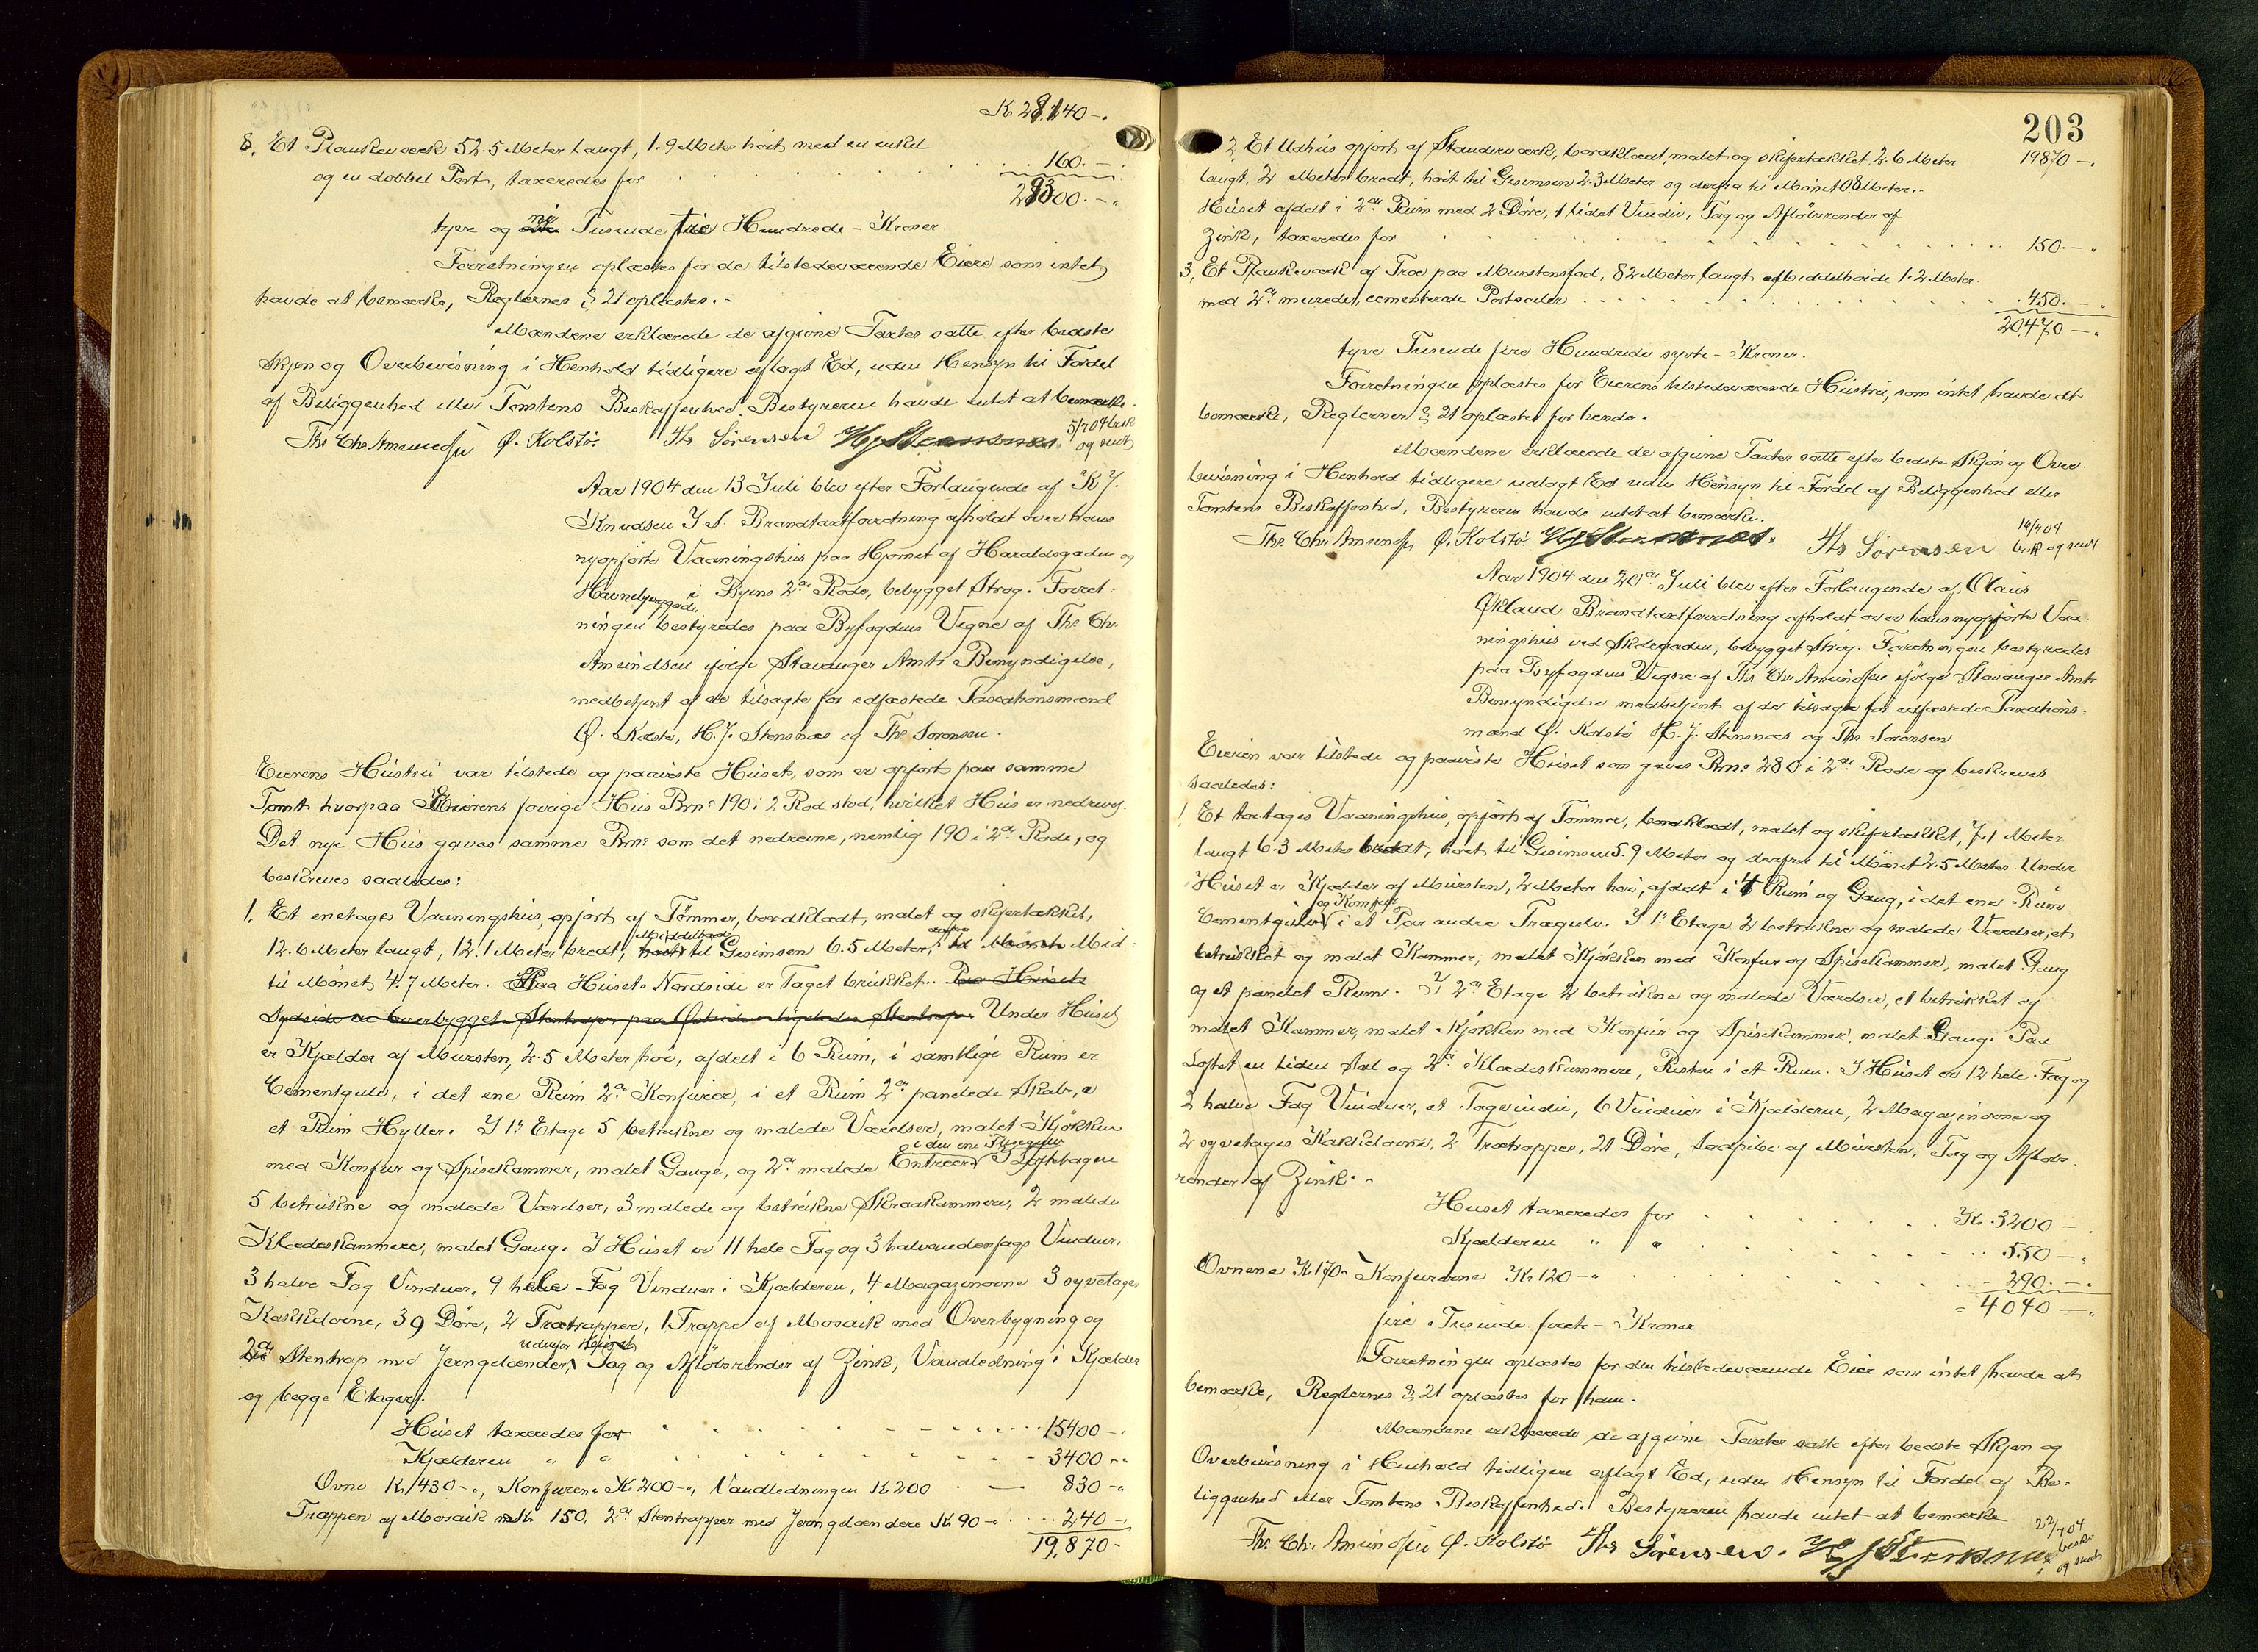 K 29,140-.
8. Et Plankeværk 52.5 Meter langt, 1.9 Meter høit med en enkel
og en dobbel Port, taxeredes for 160.-.
29300.-.
tyve og ni Tusende tre Hundrede - Kroner.
Forretningen oplæstes for de tilstedeværende Eiere som intet
havde at bemærke, Reglernes § 21 oplæstes.-
Mændene erklærede de afgivne Taxter satte efter bedste
Skjøn og Overbevisning i Henhold tidligere aflagt Ed, uden Hensyn til Fordel
af Beliggenhed eller Tomtens Beskaffenhed. Bestyreren havde intet at bemærke.
Ths. Chr. Amundsen Ø. Kolstø. Ths Sørensen H J Stensnæs. 5/7 04 besk og sendt
Aar 1904 den 13 Juli blev efter Forlangende af K J.
Knudsen J. S. Brandtaxtforretning afholdt over hans
nyopførte Vaaningshus paa Hjørnet af Haraldsgaden og
Havnebyggade i Byens 2den Rode, bebygget Strøg. Forret-
ningen bestyredes paa Byfogdens Vegne af Ths. Chr.
Amundsen ifølge Stavanger Amts Bemyndigelse,
medbetjent af de tilsagte for edfæstede Taxationsmænd
Ø. Kolstø, H. J. Stensnæs og Ths Sørensen.
Eierens Hustru var tilstede og paaviste Huset, som er opført paa samme
Tomt hvorpaa Eierens forrige Hus Brno 190 i 2 Rod stod, hvilket Hus er nedrevet.
Det nye Hus gaves samme Brno som det nedrevne, nemlig 190 i 2den Rode, og
beskreves saaledes:
1. Et enetages Vaaningshus, opført af Tømmer, bordklædt, malet og skifertækket,
12.6 Meter langt, 12.1 Meter bredt, Middelhøide til Gesimsen 6.5 Meter, derfra
til Mønet 4.7 Meter. Paa Husets Nordside er Taget brukket. Paa Husets
Sydside er Overbygget Stentrap, paa Østside ligeledes Stentrap. Under Huset
er Kjælder af Mursten, 2.5 Meter høi, afdelt i 6 Rum, i samtlige Rum er
Cementgulv, i det ene Rum 2de Konfurer, i et Rum 2de panelede Skabe, i
et Rum Hyller. I 1ste Etage 5 betrukne og malede Værelser, malet Kjøkken
med Konfur og Spisekammer, malet Gange, og 2de malede Entreer i den ene Flisegulv I Loftetagen
5 betrukne og malede Værelser, 3 malede og betrukne Skraakammere, 2 malede
Klædeskammere, malet Gang. I Huset er 11 hele Fag og 3 halvandenfags Vinduer,
3 halve Fag Vinduer, 9 halve Fag Vinduer i Kjælderen, 4 Magazinovne 3 syvetages
Kakkelovne, 39 Døre, 2 Trætrapper, 1 Trappe af Mosaik med Overbygning og
2de Stentrap med Jerngelænder udenfor Huset, Tag og Afløbsrender af Zink, Vandledning i Kjælder
og begge Etager.
Huset taxeredes for 15400-.
Kjælderen " " 3400-.
Ovne K. 430-., Konfurene K. 200-., Vandledningen K 200 830-.
Trappen af Mosaik Kr 150, 2de Stentrapper med Jerngelændere K. 90-. 240-.
19,870-
203
19870-.
2. Et Udhus opført af Standerværk, bordklædt, malet og skifertækket, 2.6 Meter
langt, 2 Meter bredt, høit til Gesimsen 2.3 Meter og derfra til Mønet 0.8 Meter.-
Huset afdelt i 2de Rum med 2 Døre, 1 lidet Vindu, Tag og Afløbsrender af
Zink, taxeredes for 150.-.
3. Et Plankeværk af Træ paa Murstensfod, 82 Meter langt Middelhøide 1.2 Meter.
med 2de murede, cementerede Portsøiler 450.-.
20,470-.
tyve Tusende fire Hundrede sytti - Kroner.
Forretningen oplæstes for Eierens tilstedeværende Hustru, som intet havde at
bemærke, Reglernes § 21 oplæstes for hende.
Mændene erklærede de afgivne Taxter satte efter bedste Skjøn og Over-
bevisning i Henhold tidligere aflagt Ed uden Hensyn til Fordel af Beliggenhed eller
Tomtens Beskaffenhed, Bestyreren havde intet at bemærke.
Ths. Chr. Amundsen Ø. Kolstø. H J Stensnæs. Ths Sørensen 14/7 04 besk og sendt
Aar 1904 den 20de Juli blev efter Forlangende af Olaus
Økland Brandtaxtforretning afholdt over hans nyopførte Vaa-
ningshus ved Skolegaden, bebygget Strøg. Forretningen bestyredes
paa Byfogdens Vegne af Ths. Chr. Amundsen ifølge Stavanger Amts
Bemyndigelse medbetjent af de tilsagte for edfæstede Taxations-
mænd Ø. Kolstø H. J. Stensnæs og Ths Sørensen
Eieren var tilstede og paaviste Huset som gaves Brno 280 i 2den Rode og beskreves
saaledes:
1. Et toetages Vaaningshus, opført af Tømmer, bordklædt, malet og skifertækket, 7.1 Meter
langt 6.3 Meter bredt, høit til Gesimsen 5.9 Meter og derfra til Mønet 2.5 Meter. Under
Huset er Kjælder af Mursten, 2 Meter høi, afdelt i 4 Rum og Gang, i det ene Rum
Cementgulv og Komfur i et Par andre Trægulv. I 1ste Etage 2 betrukne og malede Værelser, et
betrukket og malet Kammer, malet Kjøkken med Konfur og Spisekammer, malet Gang
og et panelet Rum. I 2den Etage 2 betrukne og malede Værelser, et betrukket og
malet Kammer, malet Kjøkken med Konfur og Spisekammer, malet Gang. Paa
Loftet en liden Sal og 2de Klædeskammere, Rister i et Rum. I Huset er 12 hele Fag og
2 halve Fag Vinduer, et Tagvindu, 6 Vinduer i Kjælderen, 2 Magazinovne og
2 syvetages Kakkelovne, 2 Trætrapper, 21 Døre, Lodpibe af Mursten, Tag og Afløbs-
render af Zink.-
Huset taxeredes for K. 3200-.
Kjælderen " " 550-.
Ovnene K. 170-. Konfurerne K. 120-. 290.-.
= 4040-.
fire Tusinde firete - Kroner
Forretningen oplæstes for den tilstedeværende Eier som intet havde at
bemærke, Reglernes § 21 oplæstes for ham.
Mændene erklærede de afgivne Taxter satte efter bedste Skjøn og
Overbevisning i Henhold tidligere aflagt Ed, uden Hensyn til Fordel af Be-
liggenhed eller Tomtens Beskaffenhed. Bestyreren havde intet at bemærke
Ths. Chr. Amundsen Ø. Kolstø. Ths Sørensen. H J Stensnæs 22/7 04 besk. og sendt